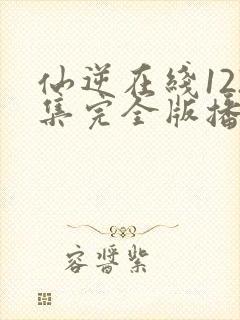 仙逆在线12
集完全版播
容誉紫